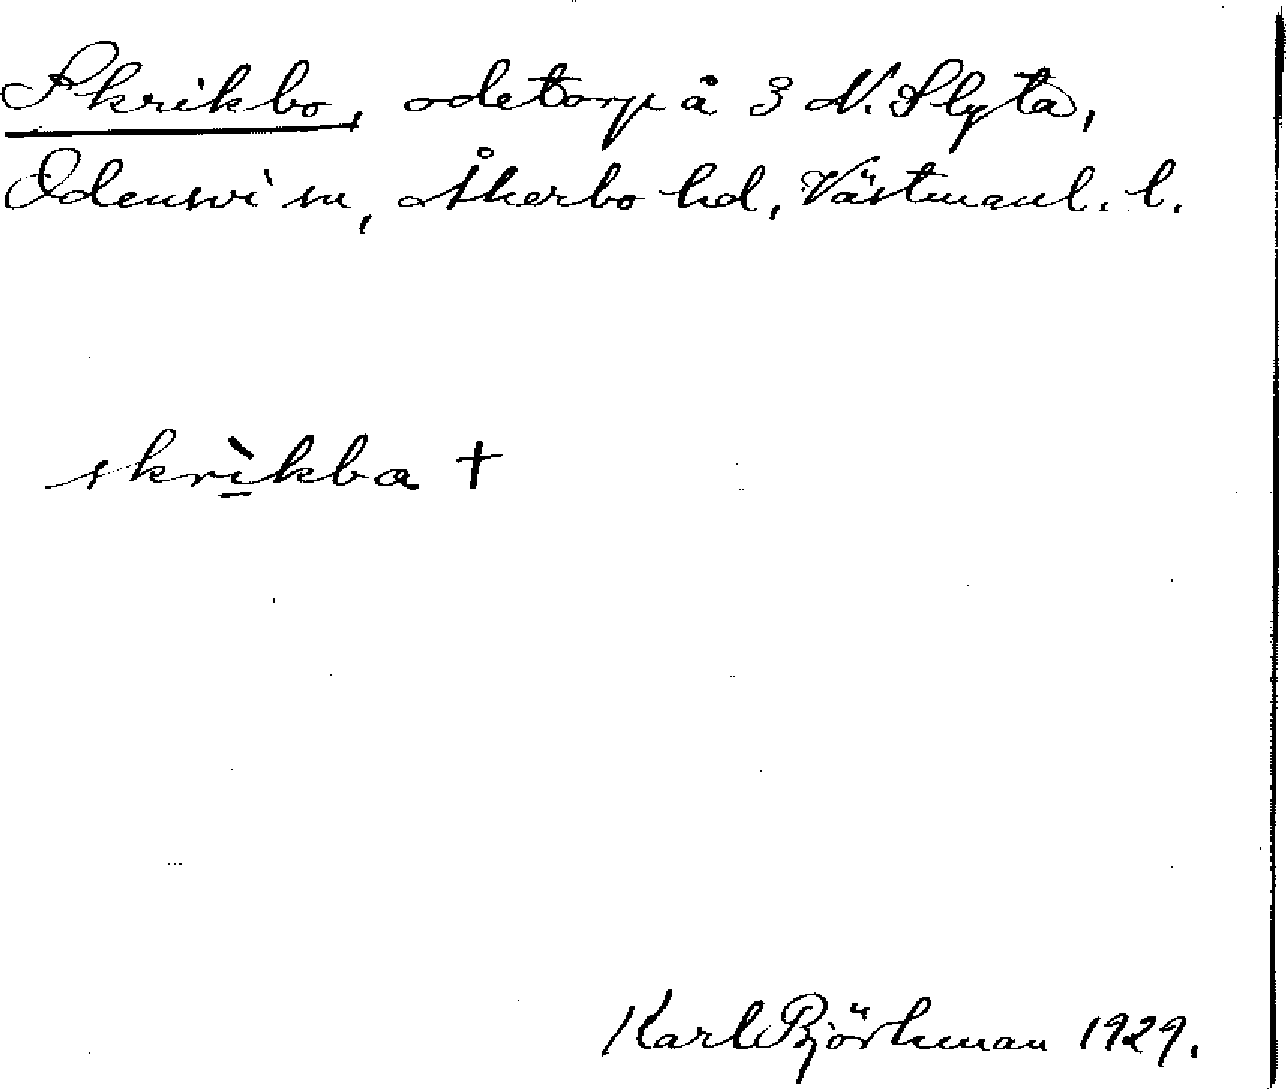 Skrikbo, ödetorp å 3 N. Slyta,
Odensvi sn, Åkerbo hd, Västmanl. l.
skrìkba †
Karl Björkman 1929.